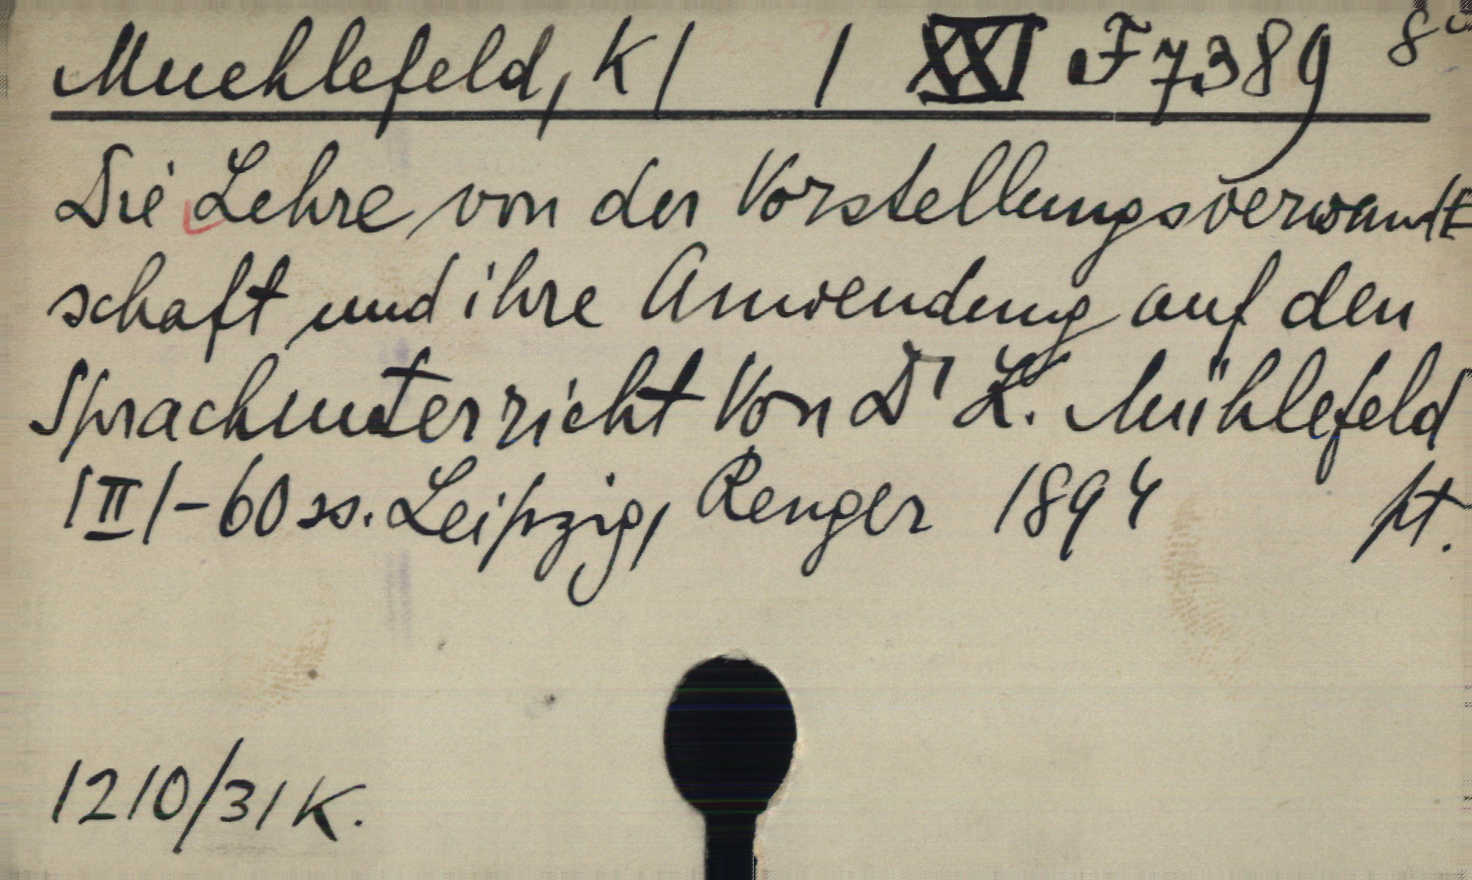 Muehlefeld, K / / XXI F 7389 8°
Die Lehre von der Vorstellungsverwandt
schaft und ihre Anwendung auf den
Sprachunterricht Von Dr K. Mühlefeld
/II/-60 ss. Leipzig, Renger 1894 pt.
1210/31 K.